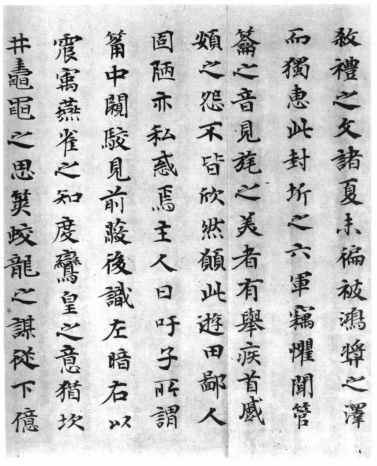 禮之文諸夏未徧被鴻獎之澤
而獨惠此封圻之六軍竊懼聞管
籥之音見旄之美者有舉疾首蹙
頞之怨不皆欣然願此遊田鄙人
固陋亦私惑焉主人曰吁子所謂
筩中闚駮見前蔽後識左暗右以
震寓燕雀之知度鸞皇之意猶坎
井鼃黽之思筭蛟龍之謀從下億